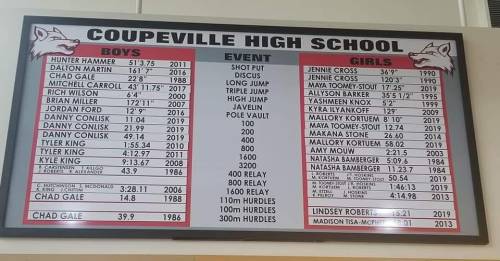 COUPEVILLE HIGH SCHOOL
BOYS EVENT GIRLS
HUNTER HAMMER 51'3.75 2011 SHOT PUT JENNIE CROSS 36'9" 1990
DALTON MARTIN 161' 7" 2016 DISCUS JENNIE CROSS 120'3" 1990
CHAD GALE 22'8" 1988 LONG JUMP MAYA TOOMEY-STOUT 17'25" 2019
MITCHELL CARROLL 43' 11.75" 2017 TRIPLE JUMP ALLYSON BARKER 35'5 1/2" 1995
RICH WILSON 6'4" 2000 HIGH JUMP YASHMEEN KNOX 5'2" 1999
BRIAN MILLER 172'11" 2007 JAVELIN KYRA ILYANKOFF 129' 2009
JORDAN FORD 12' 9" 2016 POLE VAULT MALLORY KORTUEM 8' 10" 2019
DANNY CONLISK 11.04 2019 100 MAYA TOOMEY-STOUT 12.74 2019
DANNY CONLISK 21.99 2019 200 MAKANA STONE 26.60 2014
DANNY CONLISK 49.14 2019 400 MALLORY KORTUEM 58.02 2019
TYLER KING 1:55.34 2010 800 AMY MOUW 2:21.5 2003
TYLER KING 4:12.97 2011 1600 NATASHA BAMBERGER 5:09.6 1984
KYLE KING 9:13.67 2008 3200 NATASHA BAMBERGER 11.23.7 1984
43.9 1986 400 RELAY 50.54 2019
800 RELAY 1:46:13 2019
C. HUTCHINSON S. MCDONALD
3:28.11 2006 1600 RELAY 4:14.98 2013
CHAD GALE 14.8 1988 110m HURDLES
100m HURDLES LINDSEY ROBERTS 2019
CHAD GALE 39.9 1986 300m HURDLES 2013